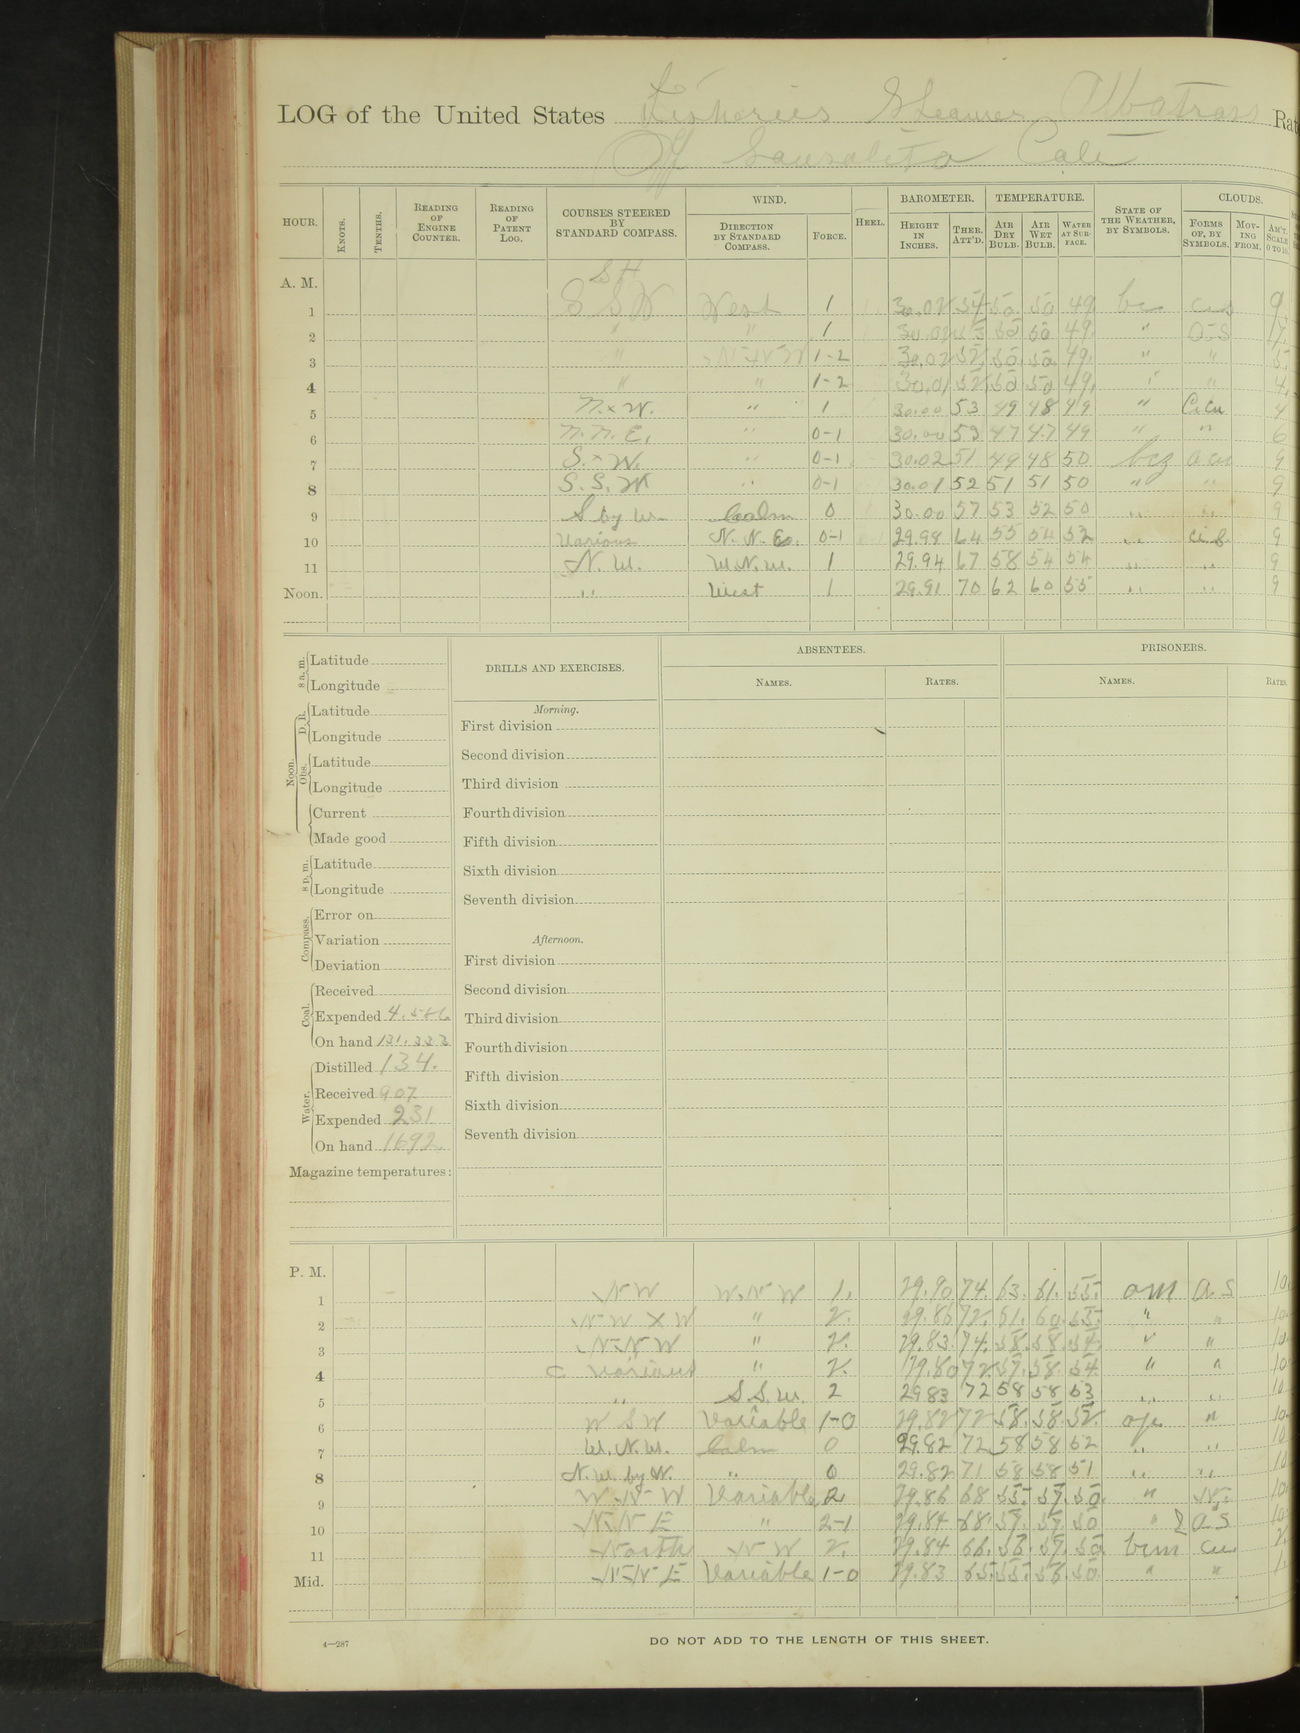 LOG of the United States Fisheries Steamer Albatross Rat
Off Sausalito Cali
HOUR. KNOTS. TENTHS. READING OF ENGINE COUNTER. READING OF PATENT LOG. COURSES STEERED BY STANDARD COMPASS. WIND. DIRECTION BY STANDARD COMPASS. FORCE. HEEL. BAROMETER. HEIGHT IN INCHES. THER. ATT'D. TEMPERATURE. AIR DRY BULB. AIR WET BULB. WATER AT SURFACE. STATE OF THE WEATHER, BY SYMBOLS. CLOUDS. FORMS OF, BY SYMBOLS. MOVING FROM. AM'T. SCALE 0 TO 10.
A. M. SH
1 S S W West 1 30.02 54 50 50 49 bc cus 9
2 " " 1 30.02 53 50 50 49 "
3 " 1-2 30.02 52 50 50 49 " " 5
4 " " 1-2 30.01 52 50 50 49 " " 4
5 N. x W. " 1 30.00 53 49 48 49 " Ci Cu 4
6 N. N. E. " 0-1 30.00 53 47 47 49 " " 6
7 S. x W. " 0-1 30.02 51 49 48 50 bcz a cu 9
8 S. S. W " 0-1 30.01 52 51 51 50 " " 9
9 S by W. Calm 0 30.00 57 53 52 50 " " 9
10 Various N. N. E. 0-1 29.98 64 55 54 52 " ci s 9
11 N. W. W.N.W. 1 29.94 67 58 54 54 " " 9
Noon. " West 1 29.91 70 62 60 55 " " 9
8 a. m. Latitude
Longitude
Noon. D. R. Latitude
Longitude
Obs. Latitude
Longitude
Current
Made good
8 p. m. Latitude
Longitude
Compass. Error on
Variation
Deviation
Coal. Received
Expended 4.586
On hand 131.333
Water. Distilled 134.
Received 907
Expended 231
On hand 1692
Magazine temperatures:
DRILLS AND EXERCISES.
Morning.
First division
Second division
Third division
Fourth division
Fifth division
Sixth division
Seventh division
Afternoon.
First division
Second division
Third division
Fourth division
Fifth division
Sixth division
Seventh division
ABSENTEES.
NAMES. RATES.
PRISONERS.
NAMES. RATES.
P. M.
1 NW W.NW 1. 29.90 74. 63. 61. 55. om a. s 10
2 NW X W " 2. 29.86 72. 61. 60. 55. " " 10
3 N.NW " 2. 29.83 74. 58. 58. 54. " " 10
4 C Various " 2. 29.80 72. 57. 58. 54 " " 10
5 " S.S.W. 2 29.83 72 58 58 53 " " 10
6 W S W Variable 1-0 29.82 72 58. 58 52. " 10
7 W.N.W. Calm 0 29.82 72 58 58 52 " " 10
8 N.W. by N. " 0 29.82 71 58 58 51 " " 10
9 W NW Variable 2 29.86 68 55. 57. 50. " N. 10
10 N.N E " 2-1 29.84 68. 57. 57. 50 " as 10
11 North NW 2. 29.84 66. 56. 57. 50 bcm cu.
Mid. N.N E Variable 1-0 29.83 65. 55. 56. 50. " "
4—287
DO NOT ADD TO THE LENGTH OF THIS SHEET.